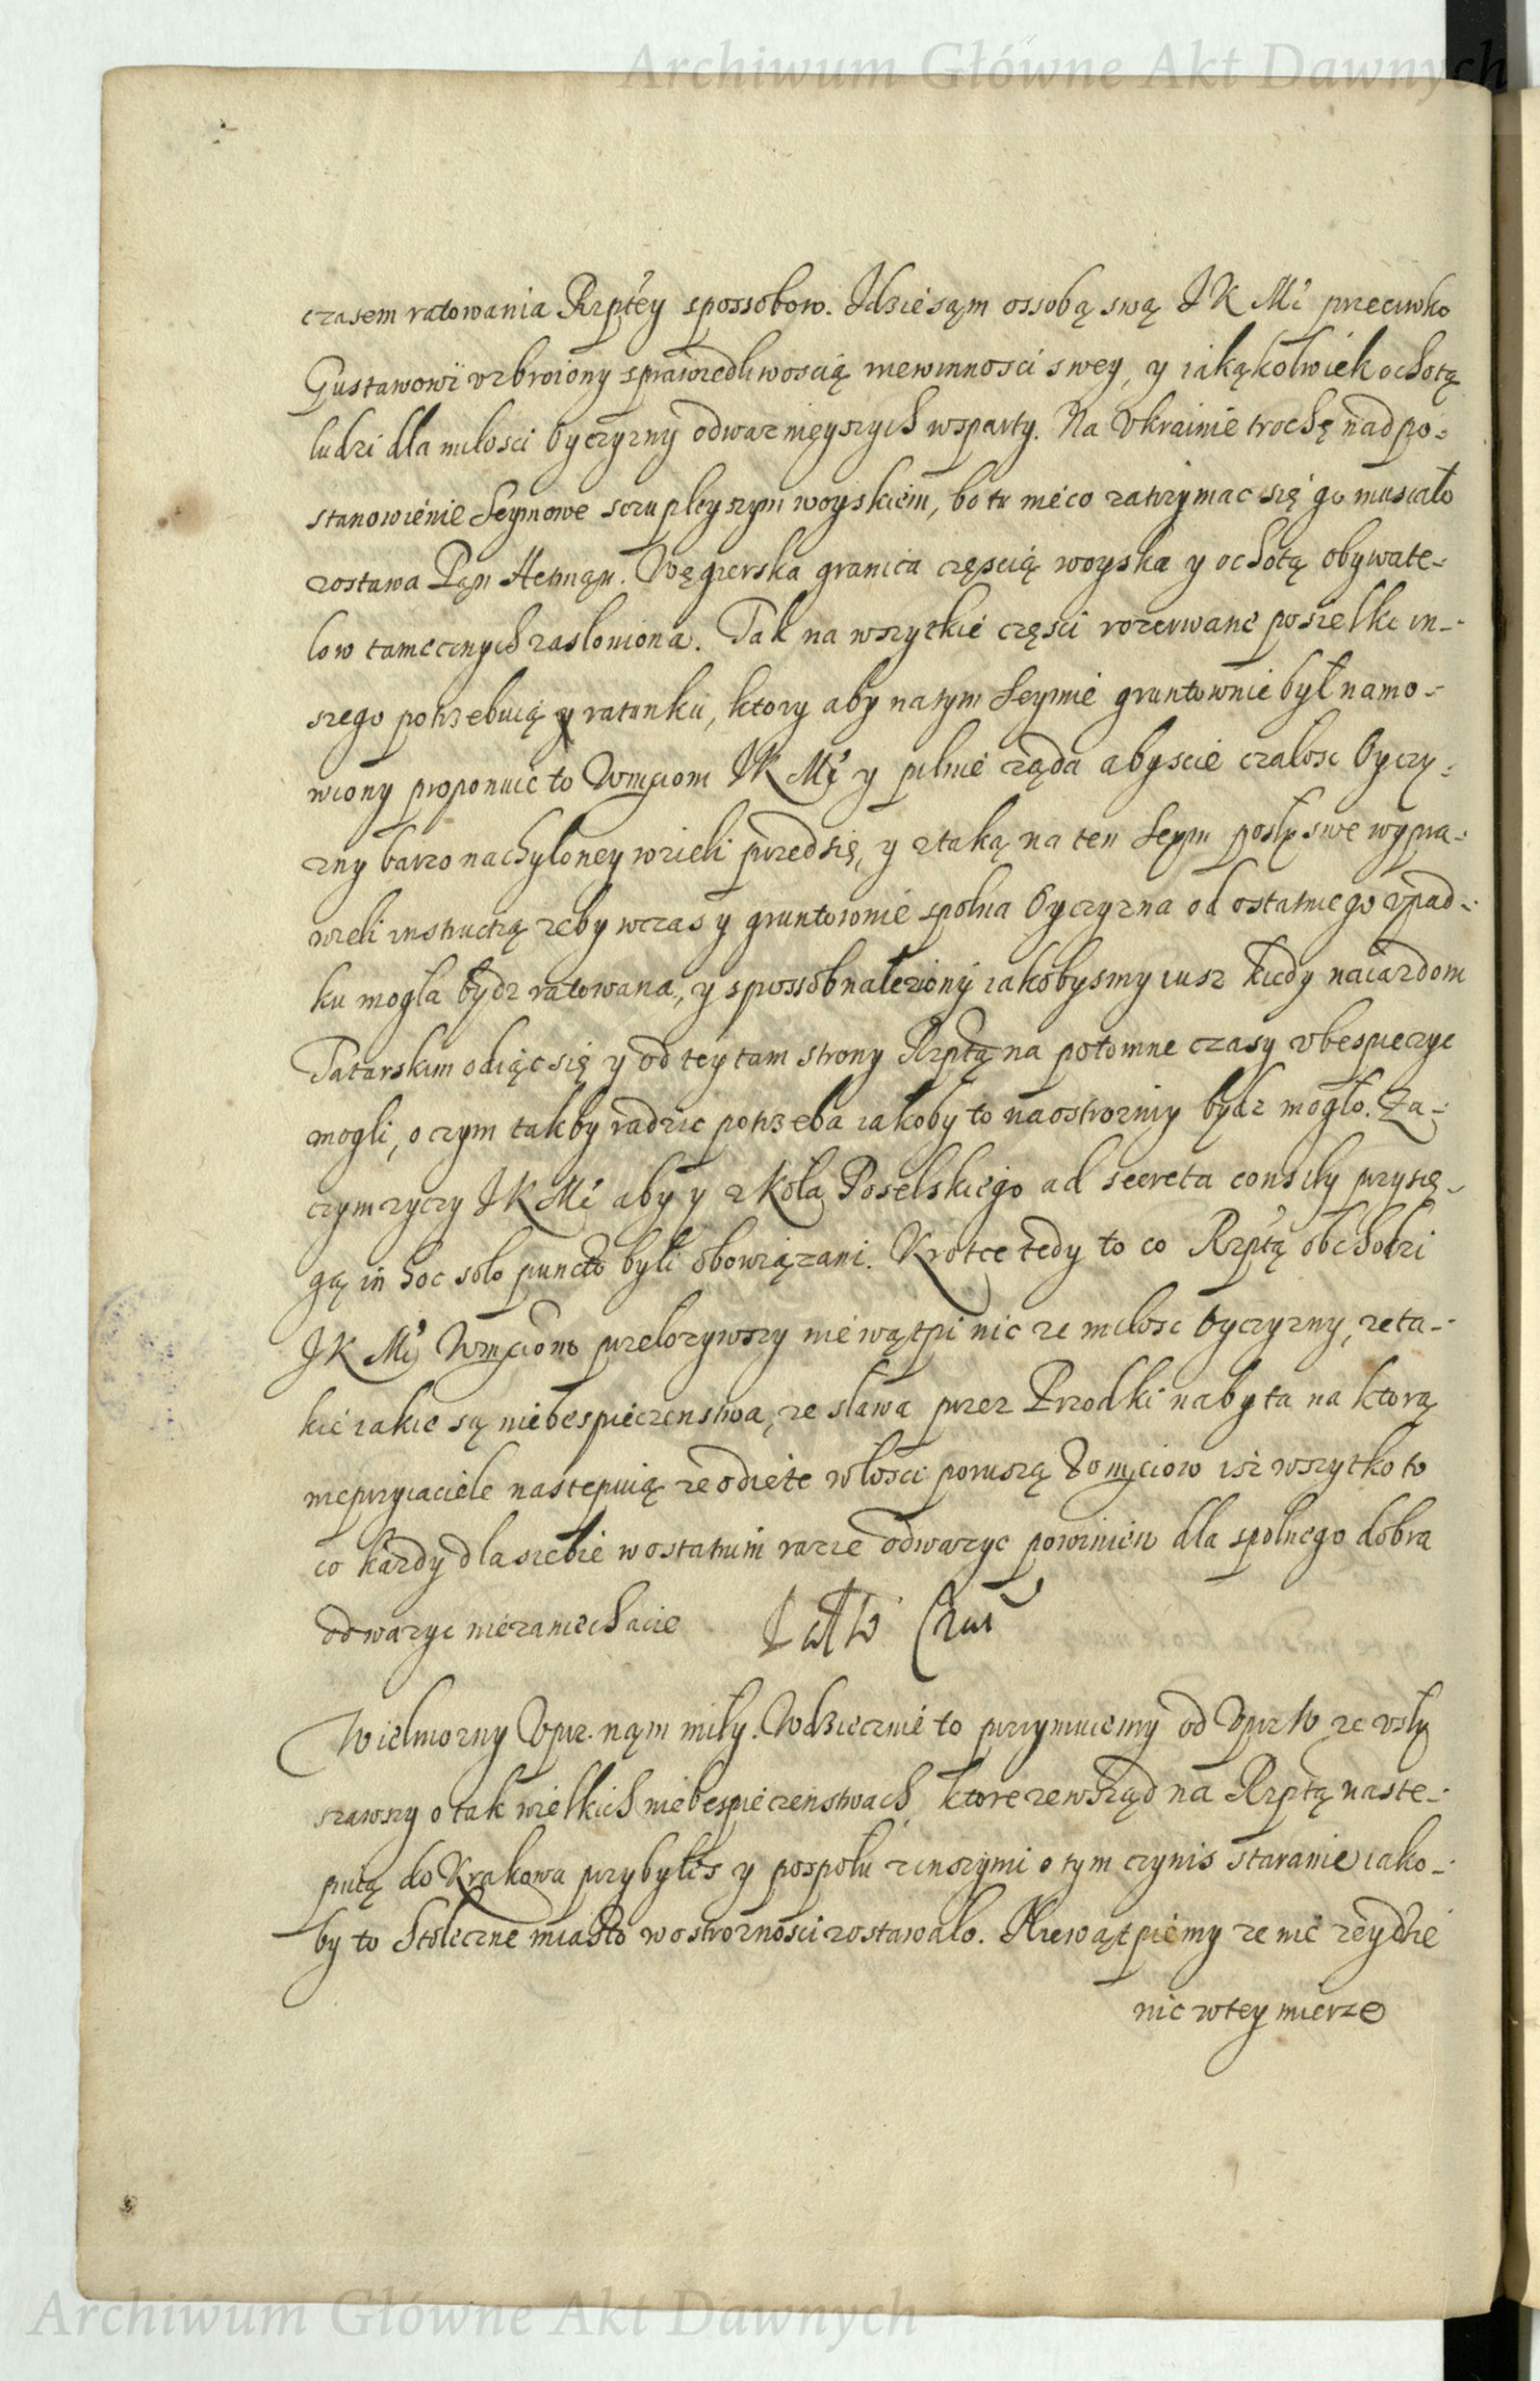 Archiwum Główne Akt Dawnych
czasem ratowania Rzptey spossobow. Idzie sąm ossobą swą JK Mć przeciwko
Gustawowi vzbroiony sprawiedliwoscią niewinnosci swey, y iakąkolwiek ochotą
ludzi dla miłosci Oyczyzny odwaznieyszych wsparty. Na Vkrainie trochę nad po-
stanowienie Seymowe szczupleyszym woyskiem, bo tu nieco zatrzymac się go musiało
zostawa Pąn Hetmąn. Węgierska granica częscią woyska y ochotą obywate-
low tamecznych zasłoniona. Tak na wszytkie częsci rozerwane posiełki in-
szego potrzebuią y ratunku, ktory aby na tym Seymie gruntownie był namo-
wiony proponuie to Wmciom JK Mć y pilnie ząda abyscie czałosc Oyczy-
zny barzo nachyloney wzieli przed się, y z taką na ten Seym posły swe wypra-
wieli instructią zeby wczas y gruntownie spolna Oyczyzna od ostatniego vpad-
ku mogła bydz ratowana, y spossob naleziony iakobysmy iusz kiedy naiazdom
Tatarskim odiąc się y od tey tam strony Rzptą na potomne czasy vbespieczyc
mogli, o czym takby radzic potrzeba iakoby to naostrozniey bydz mogło. Za-
czym zyczy JK Mć aby y z Koła Poselskiego ad secreta consilij przysię-
gą in hoc solo puncto byli obowiązani. Krotce tedy to co Rzptą obchodzi
JK Mć Wmciom przelozywszy nie wątpi nic ze miłosc Oyczyzny, ze ta-
kie iakie są niebespieczenstwa, ze sława przez Przodki nabyta na ktorą
nieprzyiaciele nastepuią ze odiete włosci poruszą Wmciow isz wszytko to
co kazdy dla siebie w ostatnim razie odwazyc powinien dla spolnego dobra
odwazyc niezaniechacie
Wielmozny Vprz. nąm miły. Wdziecznie to przymuiemy od Vprz W ze vsły
szawszy o tak wielkich niebespieczenstwach ktore zewsząd na Rzptą naste-
puią do Krakowa przybyłes y pospołu z inszymi o tym czynis staranie iako-
by to Stołeczne miasto w ostroznosci zostawało. Niewątpiemy ze nie zeydzie
nic w tey mierze
Archiwum Główne Akt Dawnych